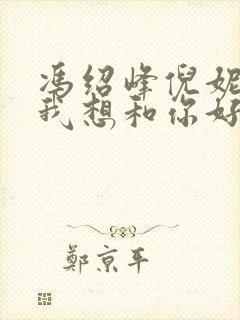 冯绍峰倪妮
我想和你好
鄭京平